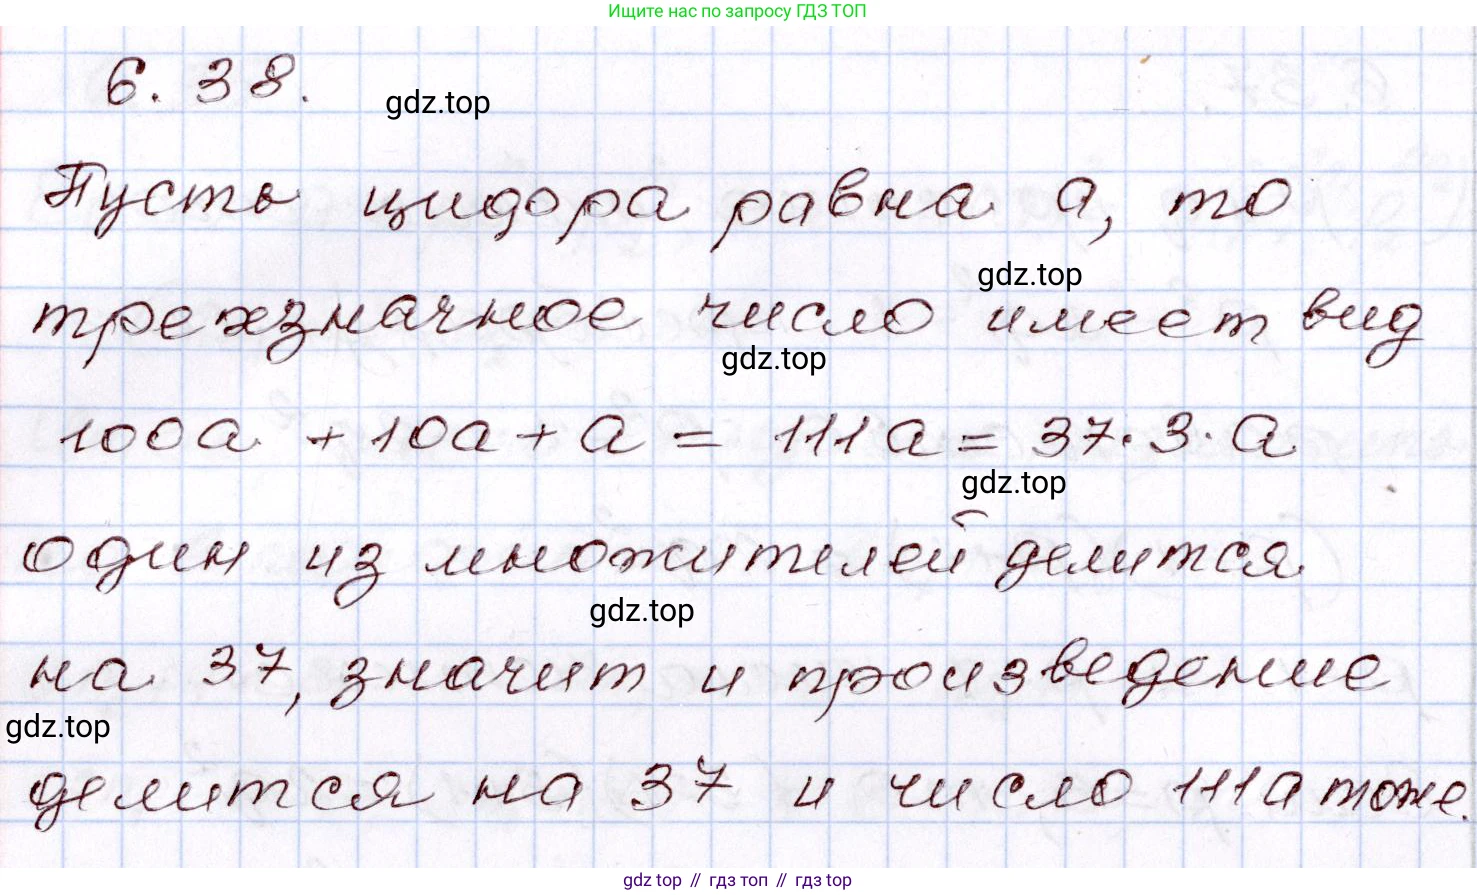 Ищите нас по запросу ГДЗ ТОП
6.38.
gdz.top
Пусть цифра равна а, то
gdz.top
трехзначное число имеет вид
gdz.top
100а + 10а + а = 111а = 37·3·а.
gdz.top
один из множителей делится
gdz.top
на 37, значит и произведение
gdz.top
делится на 37 и число 111а тоже.
gdz top // гдз топ // гдз top